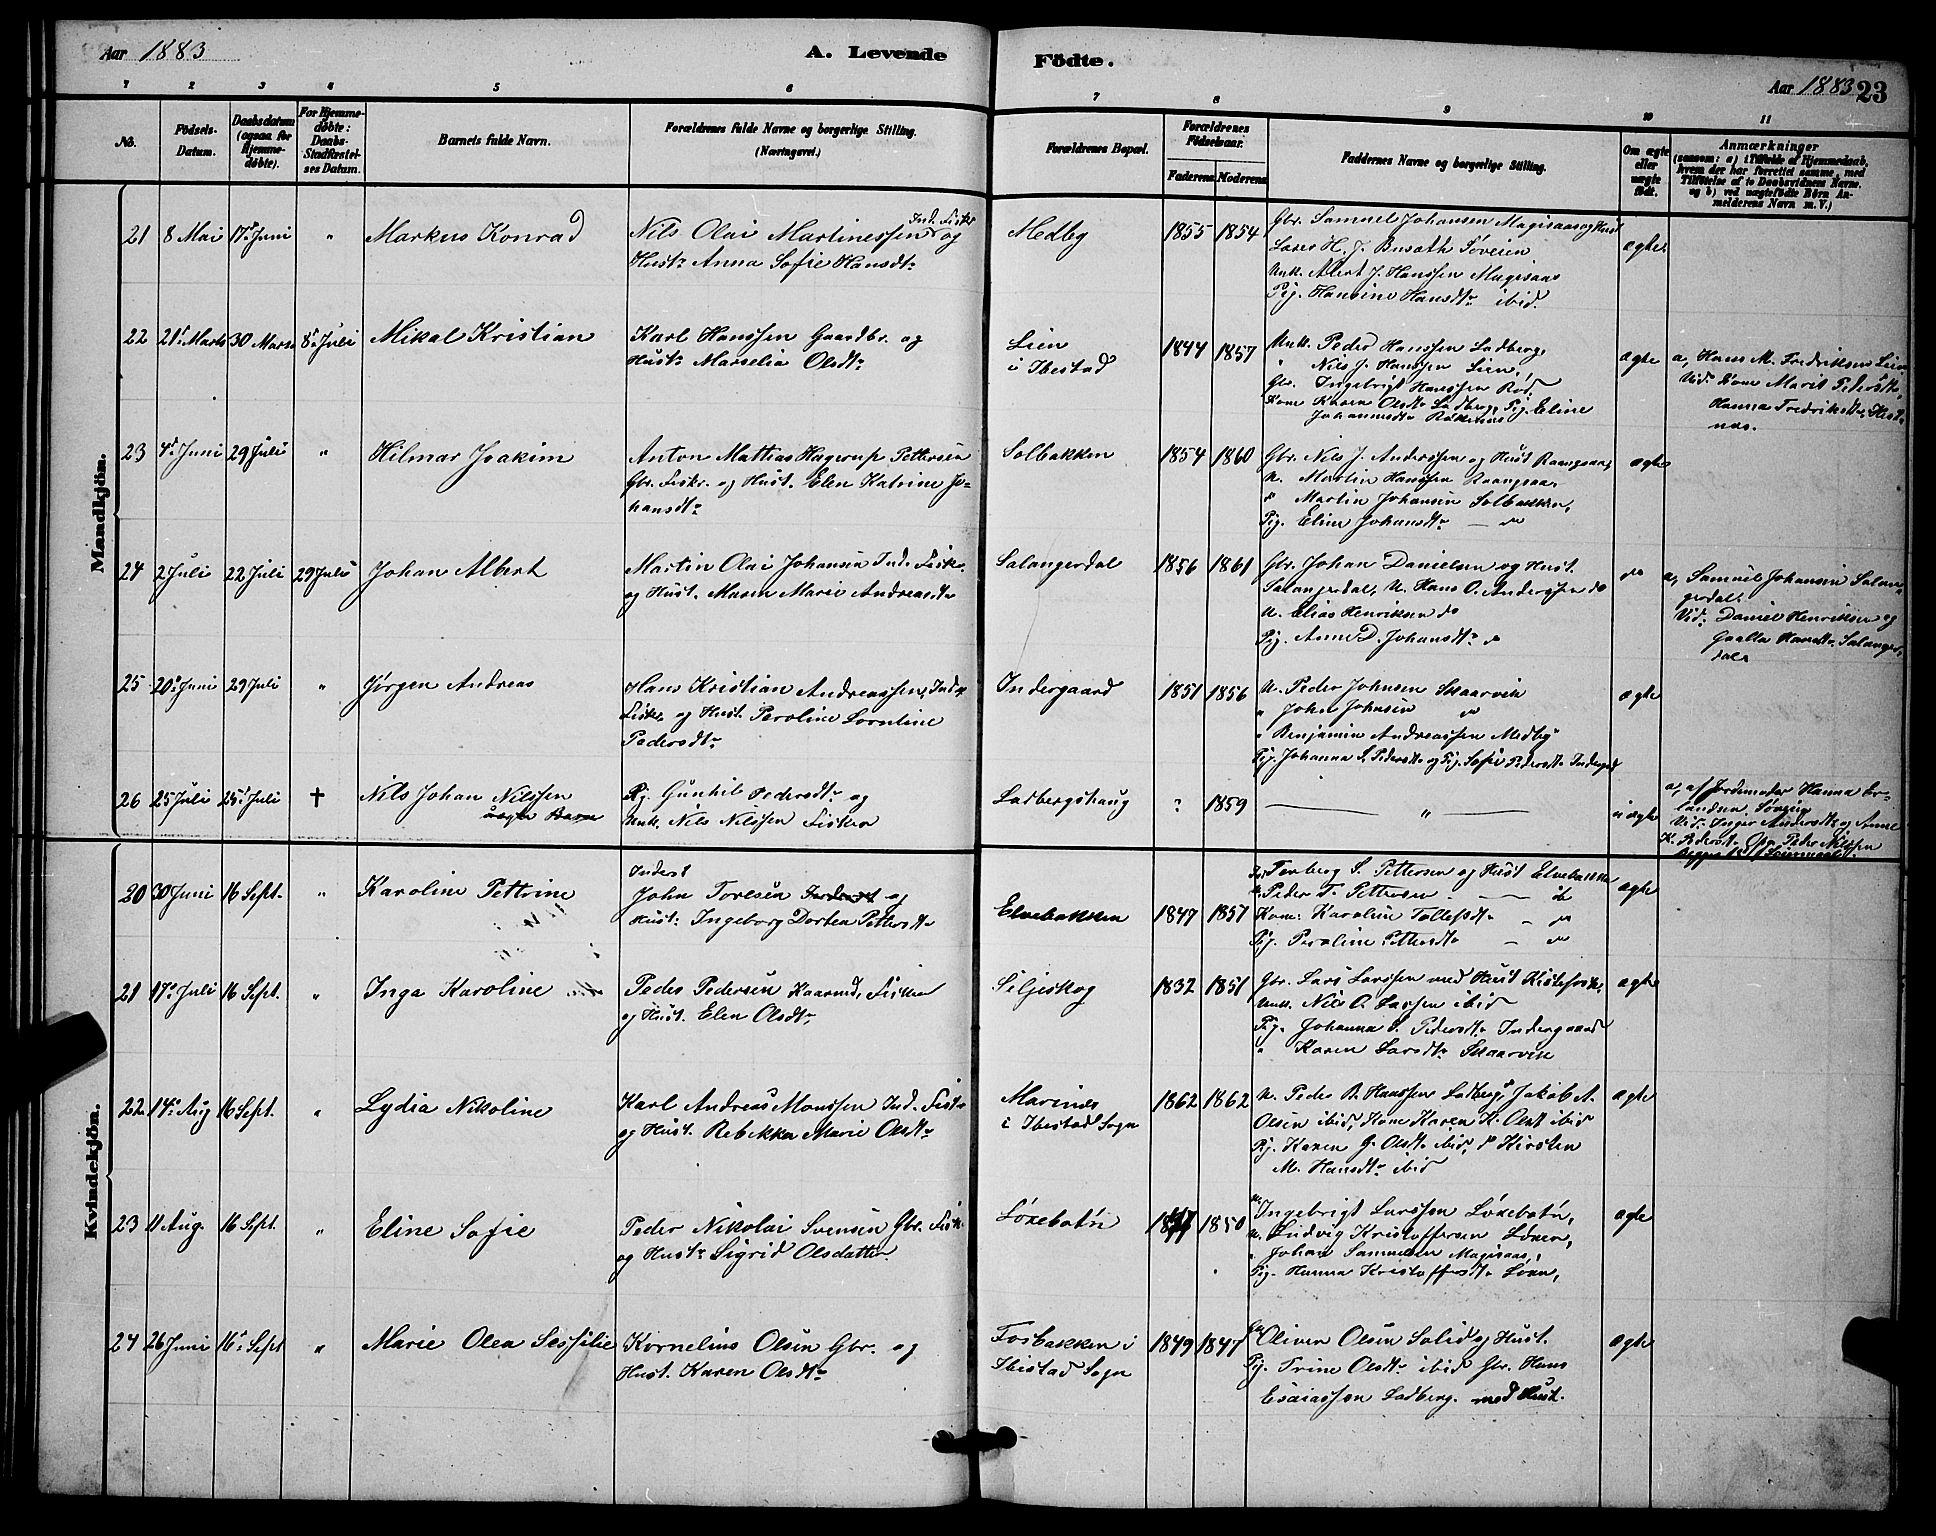 Aar 1883
A. Levende Födte.
Aar 1883 23
1 2 3 4 5 6 7 8 9 10 11
No.
Födsels-Datum.
Daabsdatum (ogsaa for Hjemmedöbte).
For Hjemmedöbte: Daabs-Stadfæstelses Datum.
Barnets fulde Navn.
Forældrenes fulde Navne og borgerlige Stilling. (Næringsvei.)
Forældrenes Bopæl.
Forældrenes Födselsaar.
Faderens. Moderens.
Faddernes Navne og borgerlige Stilling.
Om ægte eller uægte födt.
Anmærkninger
(saasom: a) i Tilfælde af Hjemmedaab, hvem der har forrettet samme, med Tilföielse af to Daabsvidners Navne. og b) ved uægtefödte Börn Anmelderens Navn m. V.)
Mandkjön.
21 8 Mai 17d Juni " Markus Konrad
Nils Olai Martinessen Ind. Fisker og
Hustr Anna Sofie Hansdtr
Medby 1855 1854
Gbr. Samuel Johansen Magisaas og Hust
Laxer H. J. Busath Söveien
Unk. Albert J. Hanssen Magesaas
Pig. Hansine Hansdtr ibid.
ægte
22 21d Marts 30 Marts 8d Juli Mikal Kristian
Karl Hanssen Gaardbr. og
Hustr Marselia Olsdtr
Lien
i Ibestad
1844 1857
Unk. Peder Hanssen Ladberg,
" Nils J. Hanssen Lien,
Gbr. Ingebrigt Hanssen Rød
Kone Karen Olsdtr Ladberg, Pig. Eline
Johannesdtr
ægte
a, Hans M. Fredriksen Lien
Vid. Kone Marit Pedersdtr
Hanna Fredriksdtr Hest-
nes.
23 4d Juni 29 Juli " Hilmar Joakim
Anton Mathias Hagerup Pettersen
Gbr. Fiskr. og Hust. Elen Katrine Jo-
hansdtr
Solbakken 1854 1860
Gbr. Nils J. Anderssen og Hust
U. Martin Hanssen
" Martin Johansen Solbakken,
Pig. Eline Johansdtr — "
ægte
24 2 Juli 22 Juli 29 Juli Johan Albert
Martin Olai Johansen Ind. Fisker
og Hust. Maren Marie Andreasdtr
Salangerdal 1856 1861
Gbr. Johan Danielsen og Hust.
Salangerdal, U. Hans O. Anderssen do
U. Elias Henriksen do
Pig. Anne D. Johansdtr do
do
a, Samuel Johansen Salan-
gerdal.
Vid. Daniel Henriksen og
Hansdtr Salanger-
dal
25 20d Juni 29 Juli " Jørgen Andreas
Hans Kristian Andreassen, Inds.
Fiskr. og Hust. Peroline Lorntine
Pedersdtr
Indergaard 1851 1856
U. Peder Johnsen Skaarvik
" John Johnsen do
" Benjamin Andreassen Medby
Pig. Johanna S. Pedersdtr og Pig. Sofie Pedersdtr Indergrd
ægte
26 25 Juli 25d Juli † Nils Johan Nilssen
uægte Barn
Pig. Gunhil Pedersdtr og
Unk. Nils Nilssen Fisker
Ladbergshaug ? 1859
— " —
uægte
a, af Jordemoder Hanna Er-
landsen Sørvig
Vid. Inger Andersdtr og Anne
K. Pedersdtr Opg. Peder Nilssen
Kvindekjön.
20 30 Juni 16 Sept. " Karoline Pettrine
Inderst
John Toresen Inderst og
Hust: Ingeborg Dortea Pettersdtr
Elvebakken 1847 1857
Torberg S. Pettersen og Hust Elvebakken
Peder T. Pettersen — do
Kone: Karoline Tollefsdtr — do
Pig. Peroline Pettersdtr — do
ægte
21 17d Juli 16 Sept. " Inga Karoline
Peder Pedersen Kaarmd, Fisker
og Hust. Elen Olsdtr,
Siljeskog 1832 1851
Gbr. Lars Larssen med Hust Kistefosk,
Unk. Nils O. Larssen ibid
Pig. Johanna S. Pedersdtr Indergaard
" Karen Larsdtr Skaarvik
ægte
22 14d Aug 16 Sept. " Lydia Nikoline
Karl Andreas Monssen Ind. Fiskr
og Hust. Rebekka Marie Olsdtr
Marines
i Ibestad Sogn
1862 1862
U. Peder B. Hanssen Ladberg, Jakob A.
Olsen ibid, Kone Karen K. Olsdt ibid
Pig. Karen G. Olsdtr ibid, do Kirsten
M. Hansdtr ibid
ægte
23 11 Aug. 16 Sept. " Eline Sofie
Peder Nikolai Svensen Gbr. Fisk.
og Hustr Sigrid Olsdatter
Løksebotn 1847 1850
Ingebrigt Larssen Løksebotn,
U. Ludvig Kristoffersen Løxen,
" Johan Samuelsen Magisaas,
Pig. Hanna Kristoffersdtr Løxn,
ægte
24 26 Juni 16d Sept " Marie Olea Sessilie
Kornelius Olsen Gbr. og
Hust. Karen Olsdtr
Fosbakken i
Ibestad Sogn
1849 1847
Gbr Oliver Olsen Solid og Hust.
Pig. Trine Olsdtr ibid Gbr. Hans
Esaiassen Ladberg. med Hust.
ægte